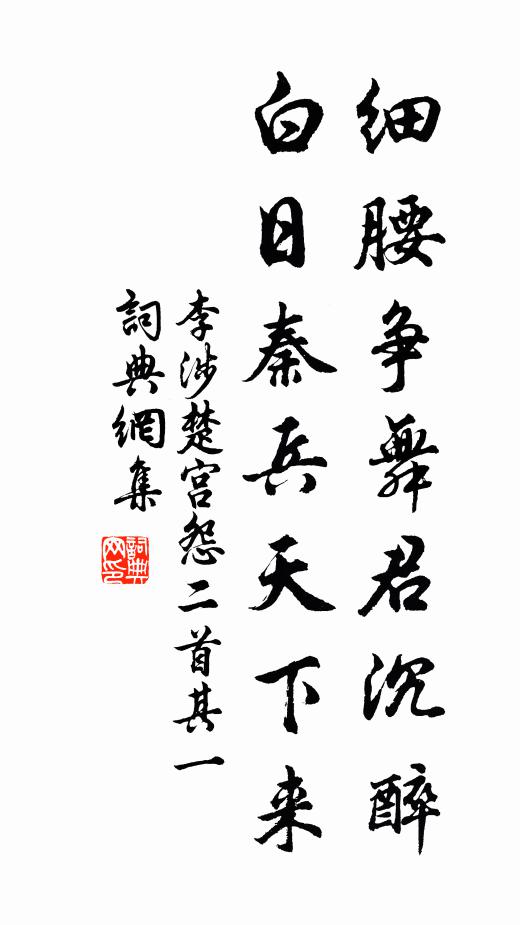 细腰争舞君沉醉
白日秦兵天下来
李涉楚宫怨二首其一
詞典網集
詞典
网印